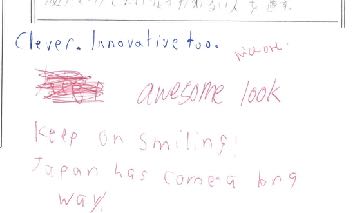 Clever. Innovative too.
awesome look
Keep on smiling!
Japan has come a long
way.